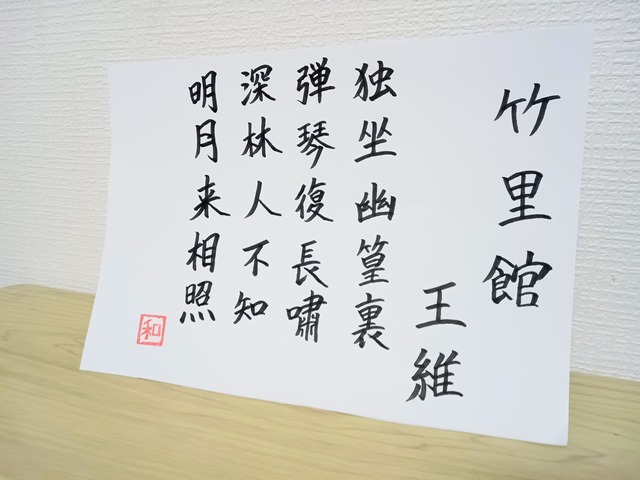 竹里館
王維
独坐幽篁裏
弾琴復長嘯
深林人不知
明月来相照
和